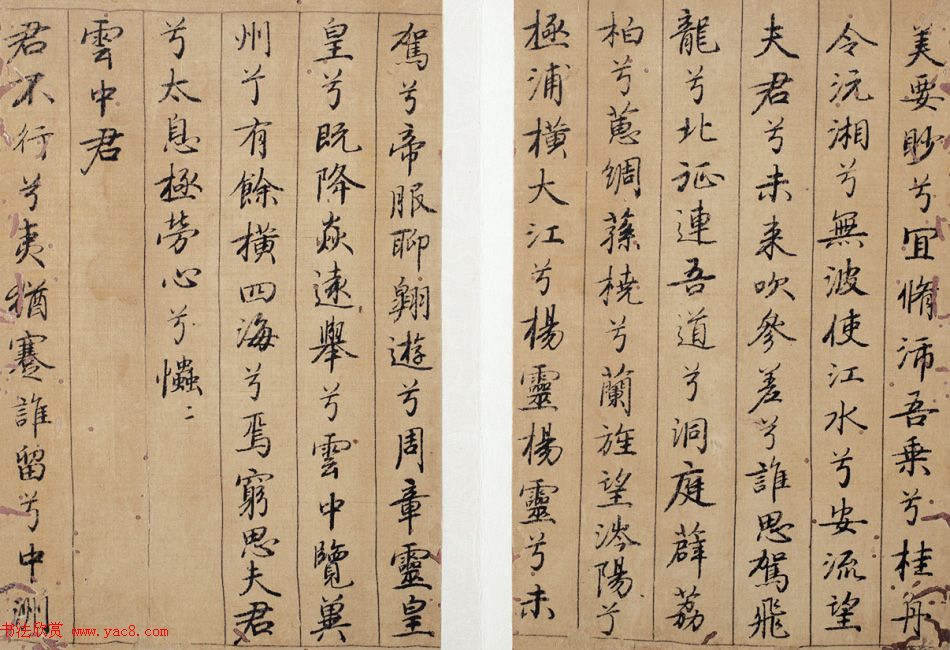 駕兮帝服聊翱遊兮周章靈皇
皇兮既降猋遠舉兮雲中覽冀
州兮有餘橫四海兮焉窮思夫君
兮太息極勞心兮𢥞〻
雲中君
君不行兮夷猶蹇誰留兮中洲
美要眇兮宜脩沛吾乘兮桂舟
令沅湘兮無波使江水兮安流望
夫君兮未来吹參差兮誰思駕飛
龍兮北征連吾道兮洞庭薜荔
柏兮蕙綢蓀橈兮蘭旌望涔陽兮
極浦橫大江兮楊靈楊靈兮未
书法欣赏 www.yac8.com